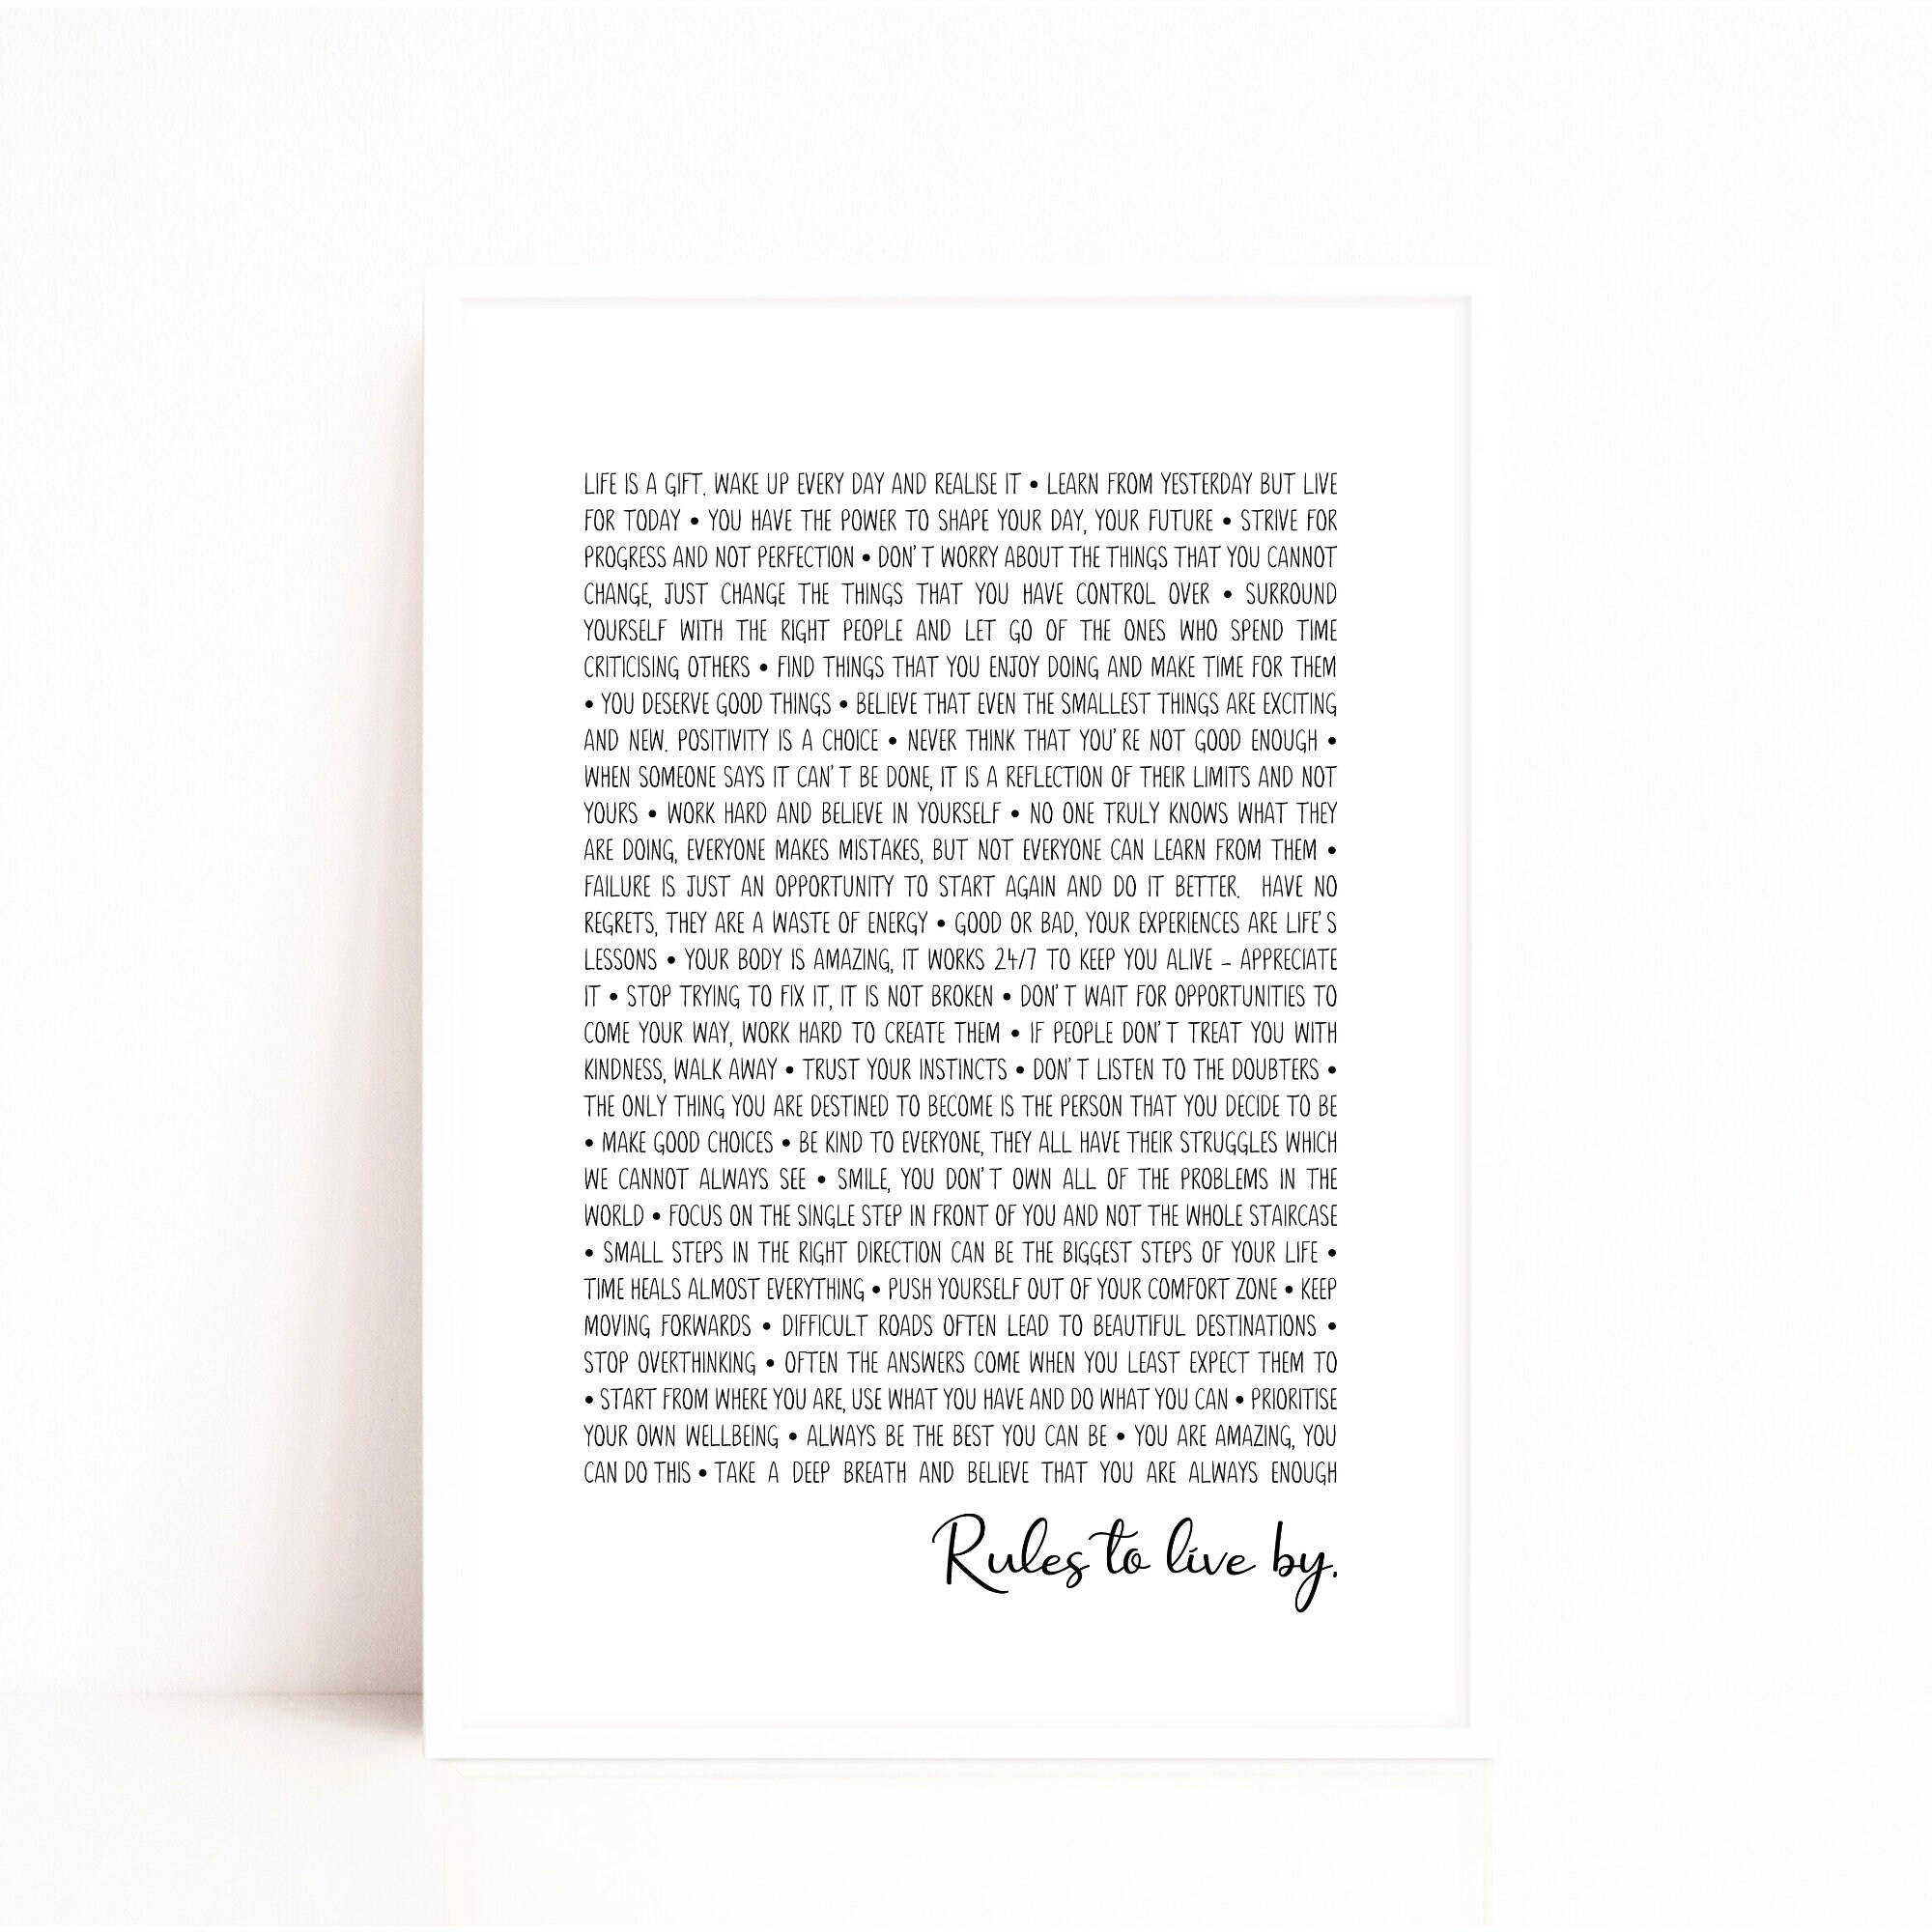 LIFE IS A GIFT. WAKE UP EVERY DAY AND REALISE IT • LEARN FROM YESTERDAY BUT LIVE
FOR TODAY • YOU HAVE THE POWER TO SHAPE YOUR DAY, YOUR FUTURE • STRIVE FOR
PROGRESS AND NOT PERFECTION • DON'T WORRY ABOUT THE THINGS THAT YOU CANNOT
CHANGE, JUST CHANGE THE THINGS THAT YOU HAVE CONTROL OVER • SURROUND
YOURSELF WITH THE RIGHT PEOPLE AND LET GO OF THE ONES WHO SPEND TIME
CRITICISING OTHERS • FIND THINGS THAT YOU ENJOY DOING AND MAKE TIME FOR THEM
• YOU DESERVE GOOD THINGS • BELIEVE THAT EVEN THE SMALLEST THINGS ARE EXCITING
AND NEW. POSITIVITY IS A CHOICE • NEVER THINK THAT YOU'RE NOT GOOD ENOUGH •
WHEN SOMEONE SAYS IT CAN'T BE DONE, IT IS A REFLECTION OF THEIR LIMITS AND NOT
YOURS • WORK HARD AND BELIEVE IN YOURSELF • NO ONE TRULY KNOWS WHAT THEY
ARE DOING, EVERYONE MAKES MISTAKES, BUT NOT EVERYONE CAN LEARN FROM THEM •
FAILURE IS JUST AN OPPORTUNITY TO START AGAIN AND DO IT BETTER. HAVE NO
REGRETS, THEY ARE A WASTE OF ENERGY • GOOD OR BAD, YOUR EXPERIENCES ARE LIFE'S
LESSONS • YOUR BODY IS AMAZING, IT WORKS 24/7 TO KEEP YOU ALIVE – APPRECIATE
IT • STOP TRYING TO FIX IT, IT IS NOT BROKEN • DON'T WAIT FOR OPPORTUNITIES TO
COME YOUR WAY, WORK HARD TO CREATE THEM • IF PEOPLE DON'T TREAT YOU WITH
KINDNESS, WALK AWAY • TRUST YOUR INSTINCTS • DON'T LISTEN TO THE DOUBTERS •
THE ONLY THING YOU ARE DESTINED TO BECOME IS THE PERSON THAT YOU DECIDE TO BE
• MAKE GOOD CHOICES • BE KIND TO EVERYONE, THEY ALL HAVE THEIR STRUGGLES WHICH
WE CANNOT ALWAYS SEE • SMILE, YOU DON'T OWN ALL OF THE PROBLEMS IN THE
WORLD • FOCUS ON THE SINGLE STEP IN FRONT OF YOU AND NOT THE WHOLE STAIRCASE
• SMALL STEPS IN THE RIGHT DIRECTION CAN BE THE BIGGEST STEPS OF YOUR LIFE •
TIME HEALS ALMOST EVERYTHING • PUSH YOURSELF OUT OF YOUR COMFORT ZONE • KEEP
MOVING FORWARDS • DIFFICULT ROADS OFTEN LEAD TO BEAUTIFUL DESTINATIONS •
STOP OVERTHINKING • OFTEN THE ANSWERS COME WHEN YOU LEAST EXPECT THEM TO
• START FROM WHERE YOU ARE, USE WHAT YOU HAVE AND DO WHAT YOU CAN • PRIORITISE
YOUR OWN WELLBEING • ALWAYS BE THE BEST YOU CAN BE • YOU ARE AMAZING, YOU
CAN DO THIS • TAKE A DEEP BREATH AND BELIEVE THAT YOU ARE ALWAYS ENOUGH
Rules to live by.